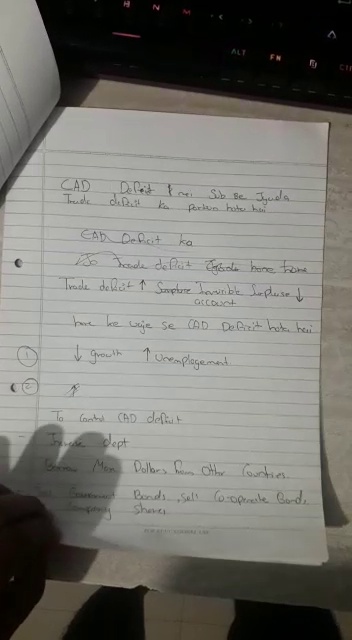 CAD Deficit mei Sub Se Jyada
Trade deficit ka portion hota hai
CAD Deficit ka
Trade deficit hone
Trade deficit ↑ Surpluse Invisible Surpluse ↓
account
hone ke waje se CAD Deficit hota hai
① ↓ Growth ↑ Unemplogement
② ↑
To control CAD deficit
- Increase dept
Borrow More Dollars from Other Countries.
Government Bonds, sell Co-operate Bonds
Company Shares
ALT FN CTRL